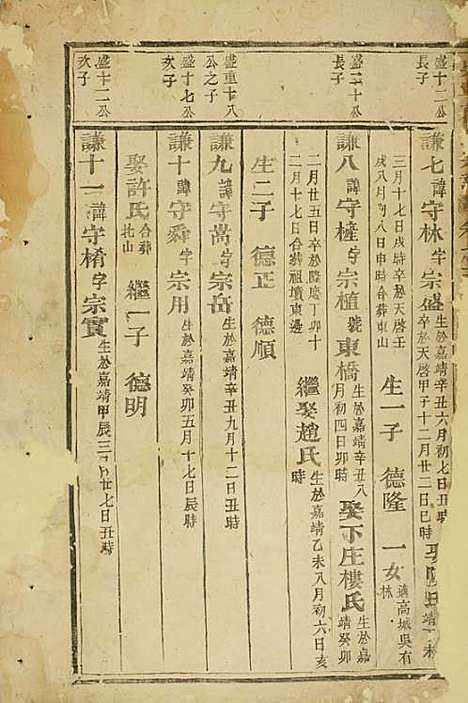 盛十二公長子
謙七 諱守林 字宗盛 生於嘉靖辛丑六月初七日丑時 卒於天啓甲子十二月廿二日巳時
三月十七日戌時卒於天啓壬戌八月初八日申時合葬東山 生一子 德隆 一女 適高城吳有林
盛二十公長子
謙八 諱守權 字宗植 號東橋 生於嘉靖辛丑八月初四日卯時 娶下庄樓氏 生於嘉靖癸卯
二月廿五日卒於隆慶丁卯十二月十七日合葬祖墳東邊 繼娶趙氏 生於嘉靖乙未八月初六日亥時
生二子 德正 德順
盛重十八公之子
謙九 諱守嵩 字宗岳 生於嘉靖辛丑九月十二日丑時
盛十七公次子
謙十 諱守舜 字宗用 生於嘉靖癸卯五月十七日辰時
娶許氏 合葬北山 繼一子 德明
盛十二公次子
謙十一 諱守楕 字宗實 生於嘉靖甲辰三月廿七日丑時